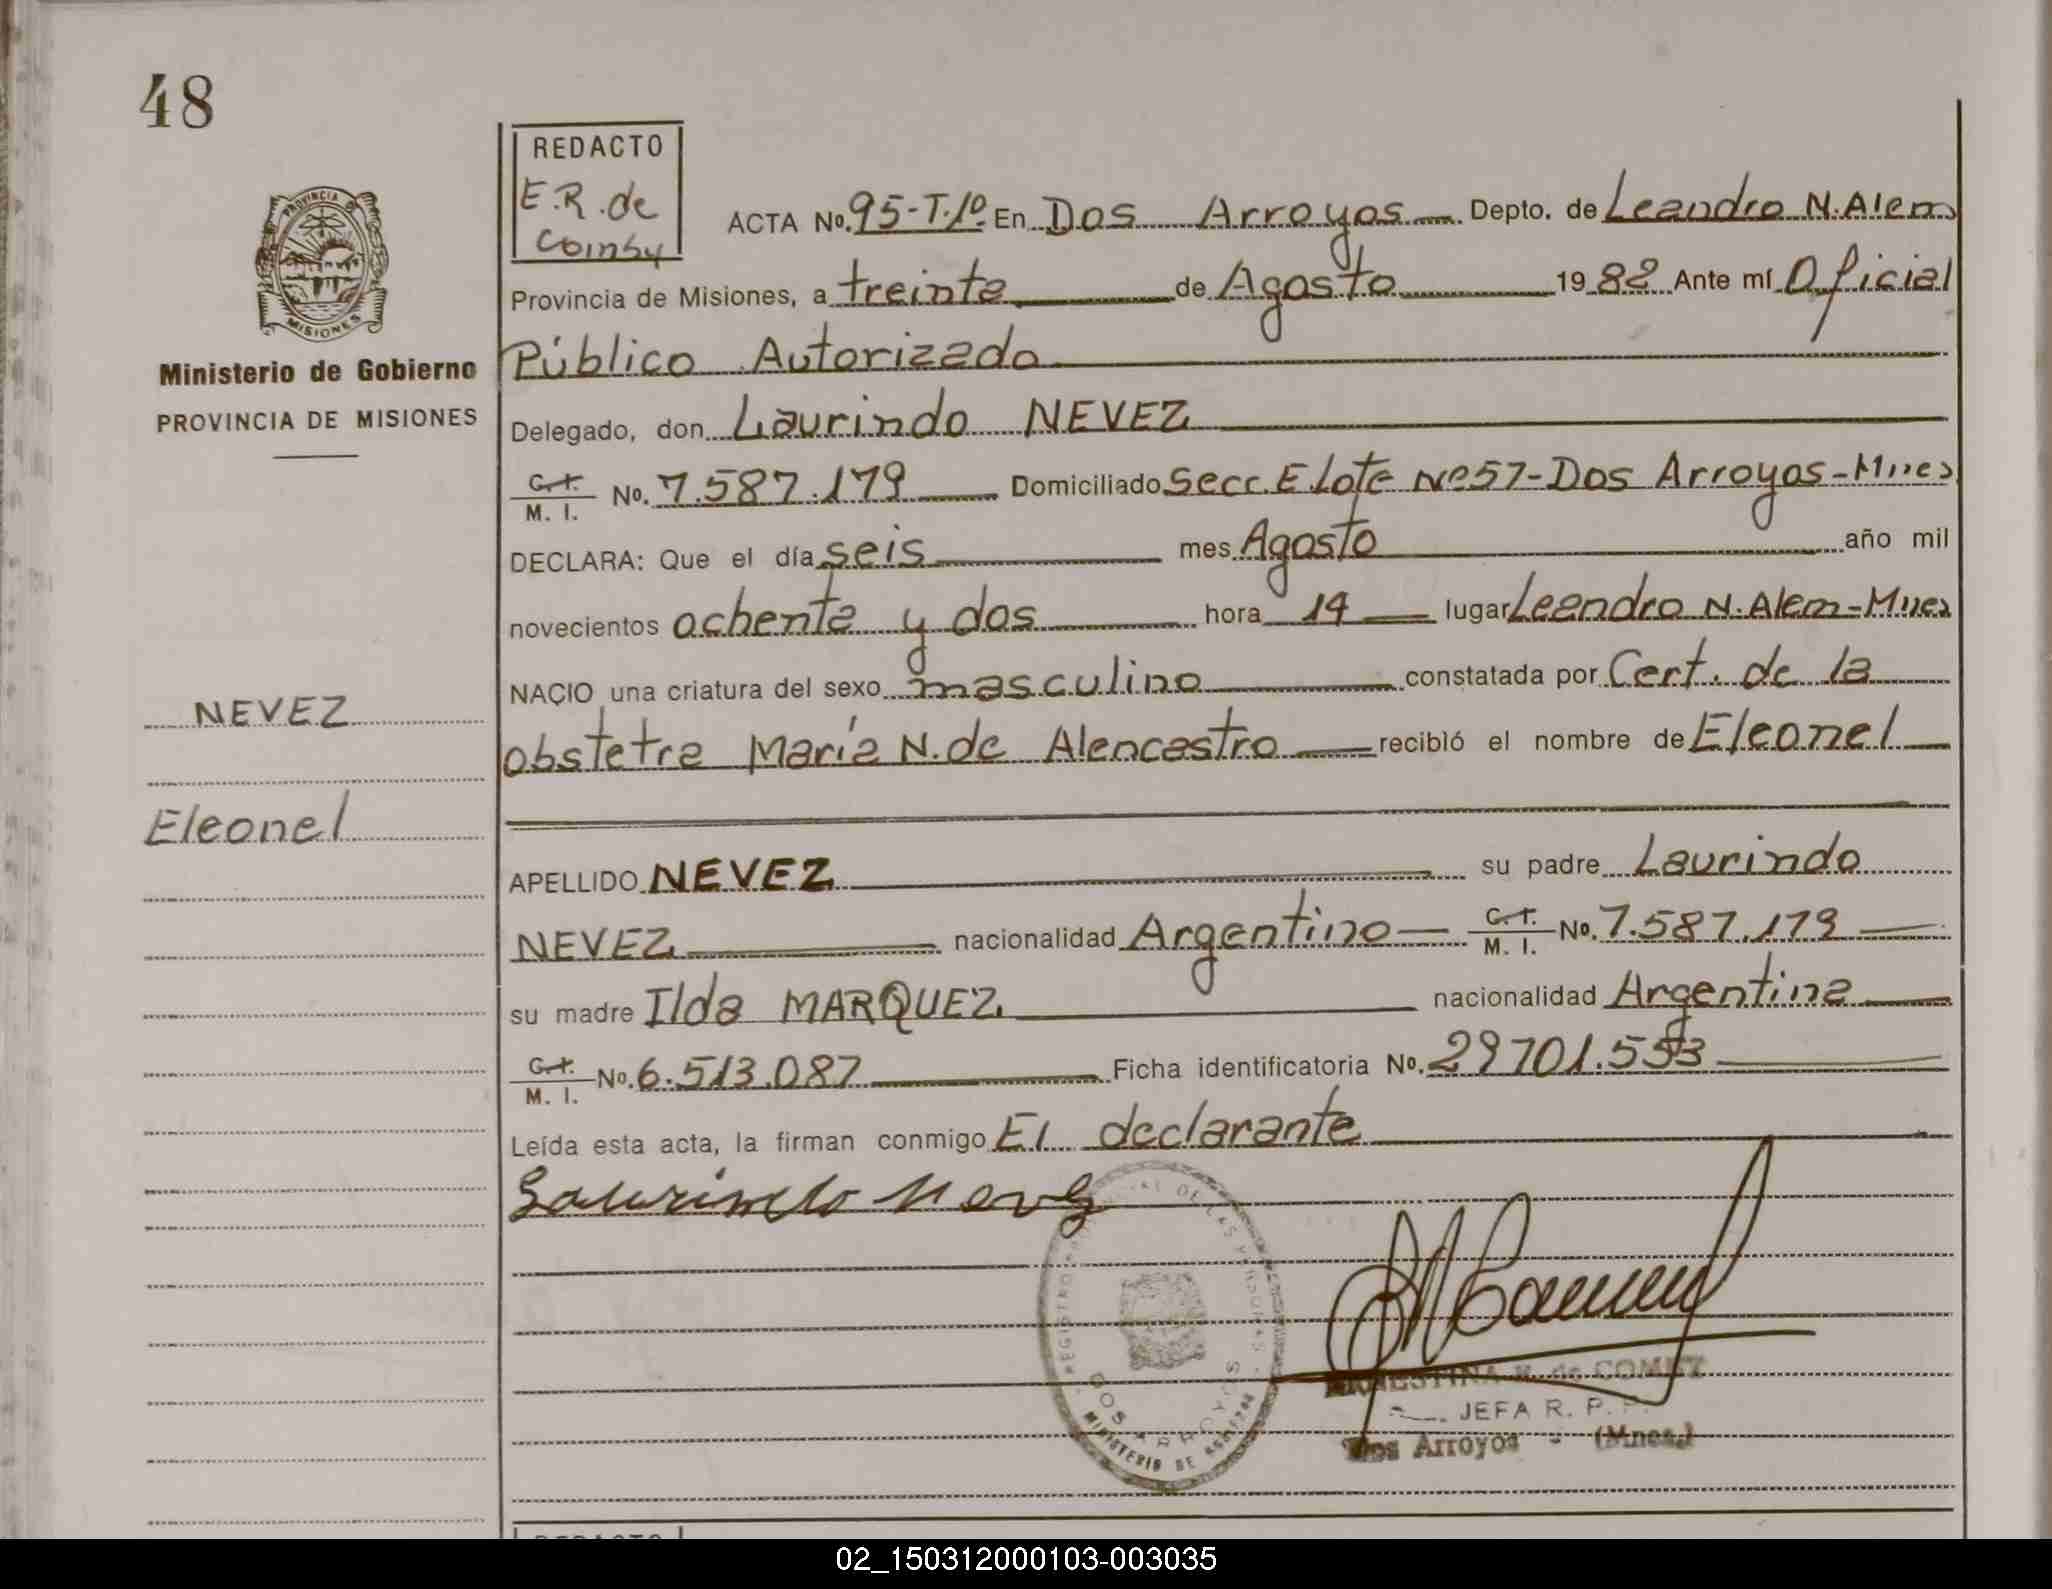 48
REDACTO
E.R. de
ACTA No. 95-T.1º En Dos Arroyos Depto. de Leandro N. Alem
Provincia de Misiones, a treinta de Agosto 1982 Ante mí Oficial
Público Autorizado
Delegado, don Laurindo NEVEZ
C.I. M. I. No. 7.587.179 Domiciliado Secc. E Lote Nº 57-Dos Arroyos-Mnes
DECLARA: Que el día seis mes Agosto año mil
novecientos ochenta y dos hora 14 lugar Leandro N. Alem-Mnes
NACIO una criatura del sexo masculino constatada por Cert. de la
obstetra María N. de Alencastro recibió el nombre de Eleonel
APELLIDO NEVEZ su padre Laurindo
NEVEZ nacionalidad Argentino C.I. M. I. No. 7.587.179
su madre Ilda MARQUEZ nacionalidad Argentina
C.I. M. I. No. 6.513.087 Ficha identificatoria No. 29701.553
Leída esta acta, la firman conmigo El declarante
Laurindo Nevez
PROVINCIA DE
MISIONES
Ministerio de Gobierno
PROVINCIA DE MISIONES
NEVEZ
Eleonel
DOS ARROYOS
MINISTERIO DE GOBIERNO
ERNESTINA R. de
JEFA R. P. P.
Dos Arroyos - (Mnes.)
REDACTO
02_150312000103-003035